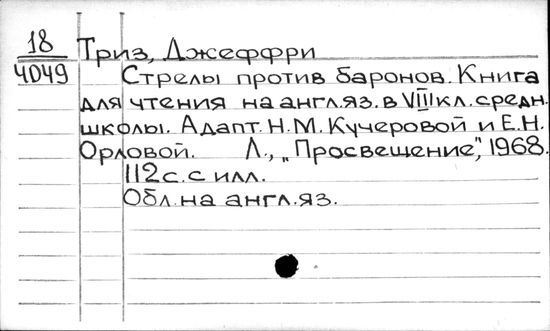 18 Триз, Джеффри
4049 Стрелы против баронов. Книга
для чтения на англ.яз. в VIII кл. средн.
школы. Адапт. Н.М. Кучеровой и Е.Н.
Орловой. Л., „Просвещение", 1968.
112 с. с илл.
Обл. на англ.яз.